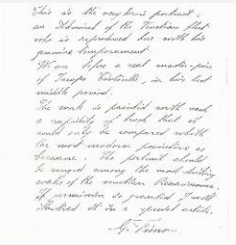 This is the very fine portrait
an Admiral of the Venetian fleet
who is reproduced here with his
genuine
We are before a real master-piece
of Jacopo Tintoretto, in his best
middle period.
The work is painted with such
a rapidity of brush that it
could only be compared whith
the most modern painting as
because. The portrait should
be ranged among the most striking
works of the venetian Renaissance.
If permission is granted I will
illustrated it in a special article.